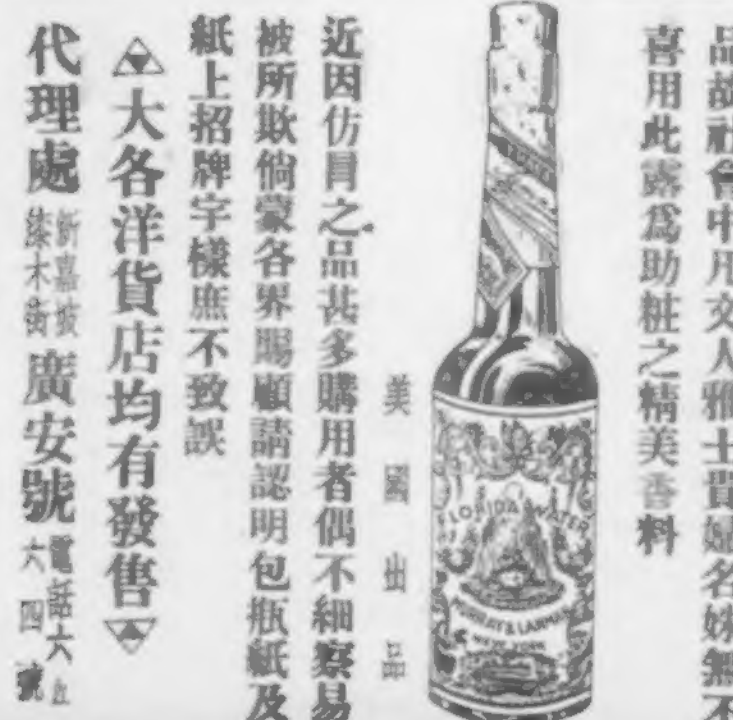 品故社會中凡文人雅士貴婦名姝無不
喜用此露爲助粧之精美香料
FLORIDA WATER
MURRAY & LANMAN
NEW YORK
美國出品
近因仿冒之品甚多購用者偶不細察易
被所欺倘蒙各界賜顧請認明包瓶紙及
紙上招牌字樣庶不致誤
大各洋貨店均有發售
代理處
新嘉坡
漆木街
廣安號
電話六五
六四號